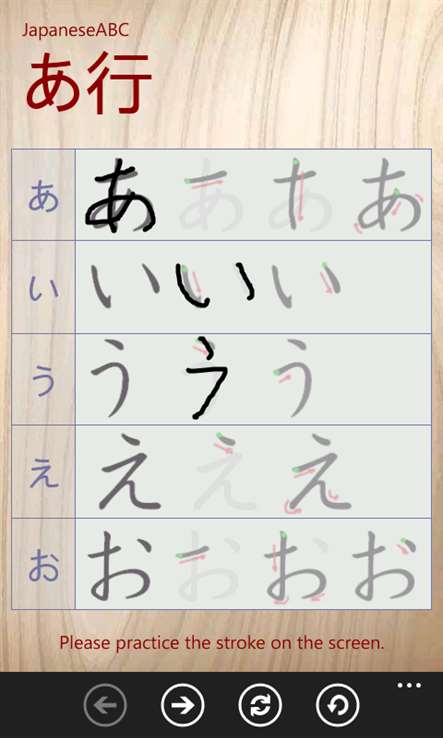 JapaneseABC
あ行
あ あ あ あ あ
い い い い
う う う う
え え え え
お お お お お
Please practice the stroke on the screen.